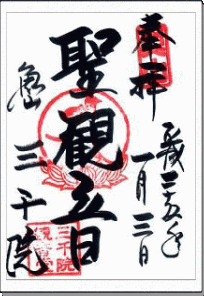 奉拝
平成二五年
一月三日
聖観音
魚山
三千院
三千院